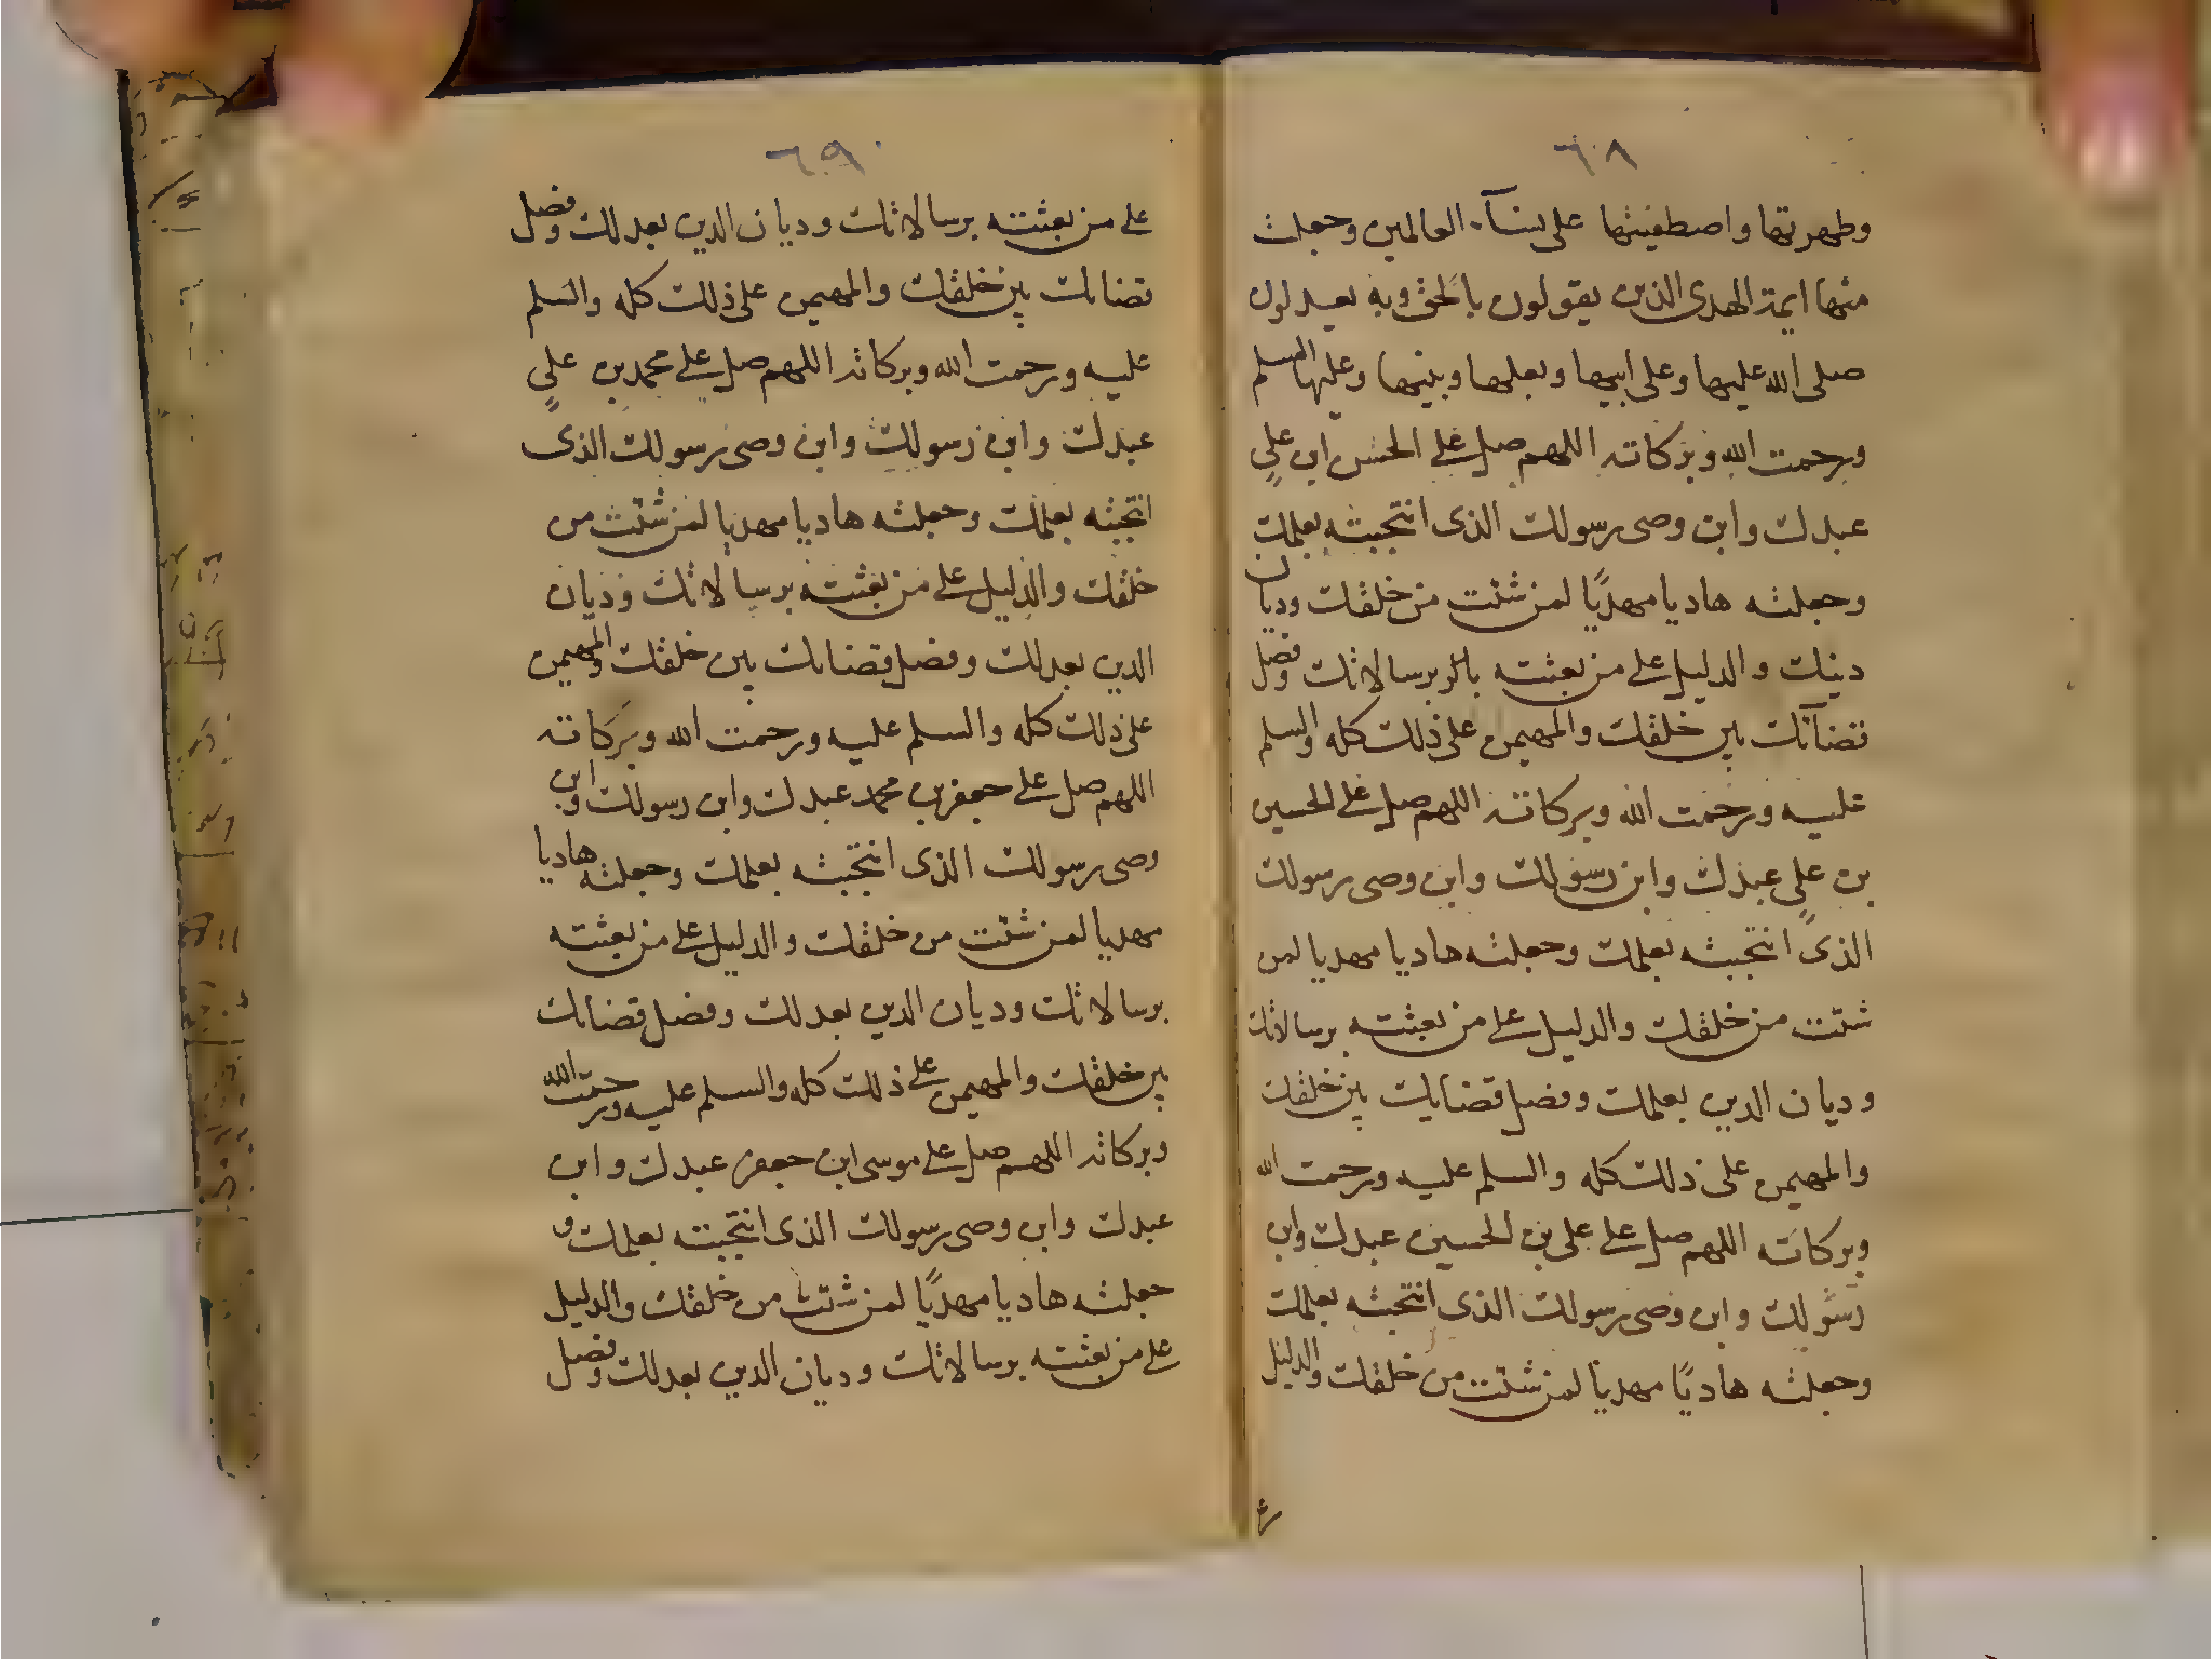 ٦٠٨
وطهرتها واصطفيتها على نسآء العالمين وجعلت
منها ايمة الهدى الذين يقولون بالحق وبه يعدلون
صلى الله عليها وعلى ابيها وبعلها وبنيها وعليها السلم
ورحمت الله وبركاته اللهم صل على الحسن ابن علي
عبدك وابن وصى رسولك الذى انتجبته بعلمك
وجعلته هاديا مهديًا لمن شئت من خلقك وديان
دينك والدليل على من بعثته برسالاتك وفصل
قضآئك بين خلقك والمهيمن على ذلك كله والسلم
عليه ورحمت الله وبركاته اللهم صل على الحسين
بن علي عبدك وابن رسولك وابن وصى رسولك
الذى انتجبته بعلمك وجعلته هاديا مهديا لمن
شئت من خلقك والدليل على من بعثته برسالاتك
وديان الدين بعلمك وفصل قضايك بين خلقك
والمهيمن على ذلك كله والسلم عليه ورحمت الله
وبركاته اللهم صل على على بن الحسين عبدك وابن
رسولك وابن وصى رسولك الذى انتجبته بعلمك
وجعلته هاديًا مهديا لمن شئت من خلقك والدليل
٦٠٩
على من بعثته برسالاتك وديان الدين بعدلك وفصل
قضائك بين خلقك والمهيمن على ذلك كله والسلم
عليه ورحمت الله وبركاته اللهم صل على محمد بن علي
عبدك وابن رسولك وابن وصى رسولك الذى
انتجبته بعلمك وجعلته هاديا مهديا لمن شئت من
خلقك والدليل على من بعثته برسالاتك وديان
الدين بعدلك وفصل قضائك بين خلقك والمهيمن
على ذلك كله والسلم عليه ورحمت الله وبركاته
اللهم صل على جعفر بن محمد عبدك وابن رسولك وابن
وصى رسولك الذى انتجبته بعلمك وجعلته هاديا
مهديا لمن شئت من خلقك والدليل على من بعثته
برسالاتك وديان الدين بعدلك وفصل قضائك
بين خلقك والمهيمن على ذلك كله والسلم عليه ورحمت الله
وبركاته اللهم صل على موسى ابن جعفر عبدك وابن
عبدك وابن وصى رسولك الذى انتجبته بعلمك و
جعلته هاديا مهديًا لمن شئت من خلقك والدليل
على من بعثته برسالاتك وديان الدين بعدلك وفصل